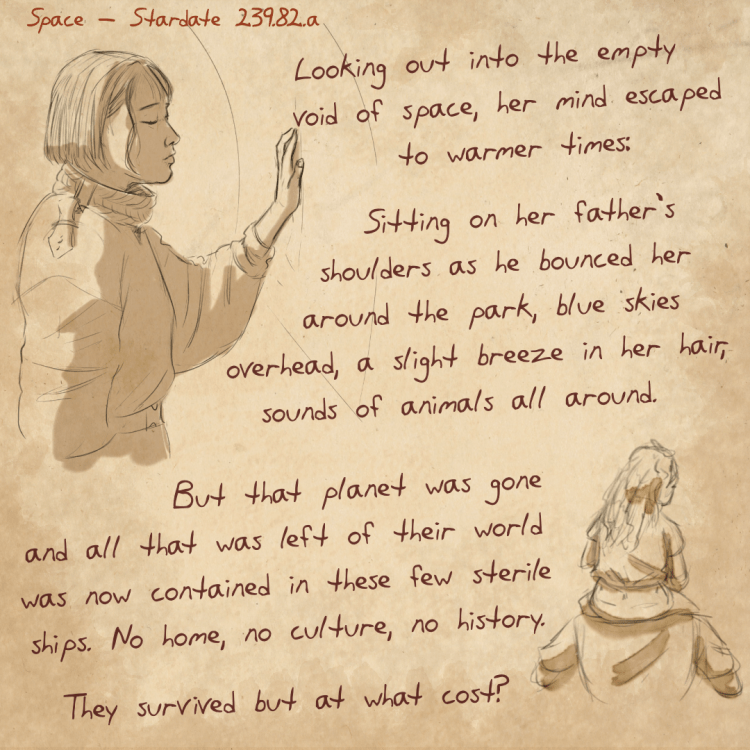 Space – Stardate 239.82.a
Looking out into the empty
void of space, her mind escaped
to warmer times:
Sitting on her father's
shoulders as he bounced her
around the park, blue skies
overhead, a slight breeze in her hair,
sounds of animals all around.
But that planet was gone
and all that was left of their world
was now contained in these few sterile
ships. No home, no culture, no history.
They survived but at what cost?